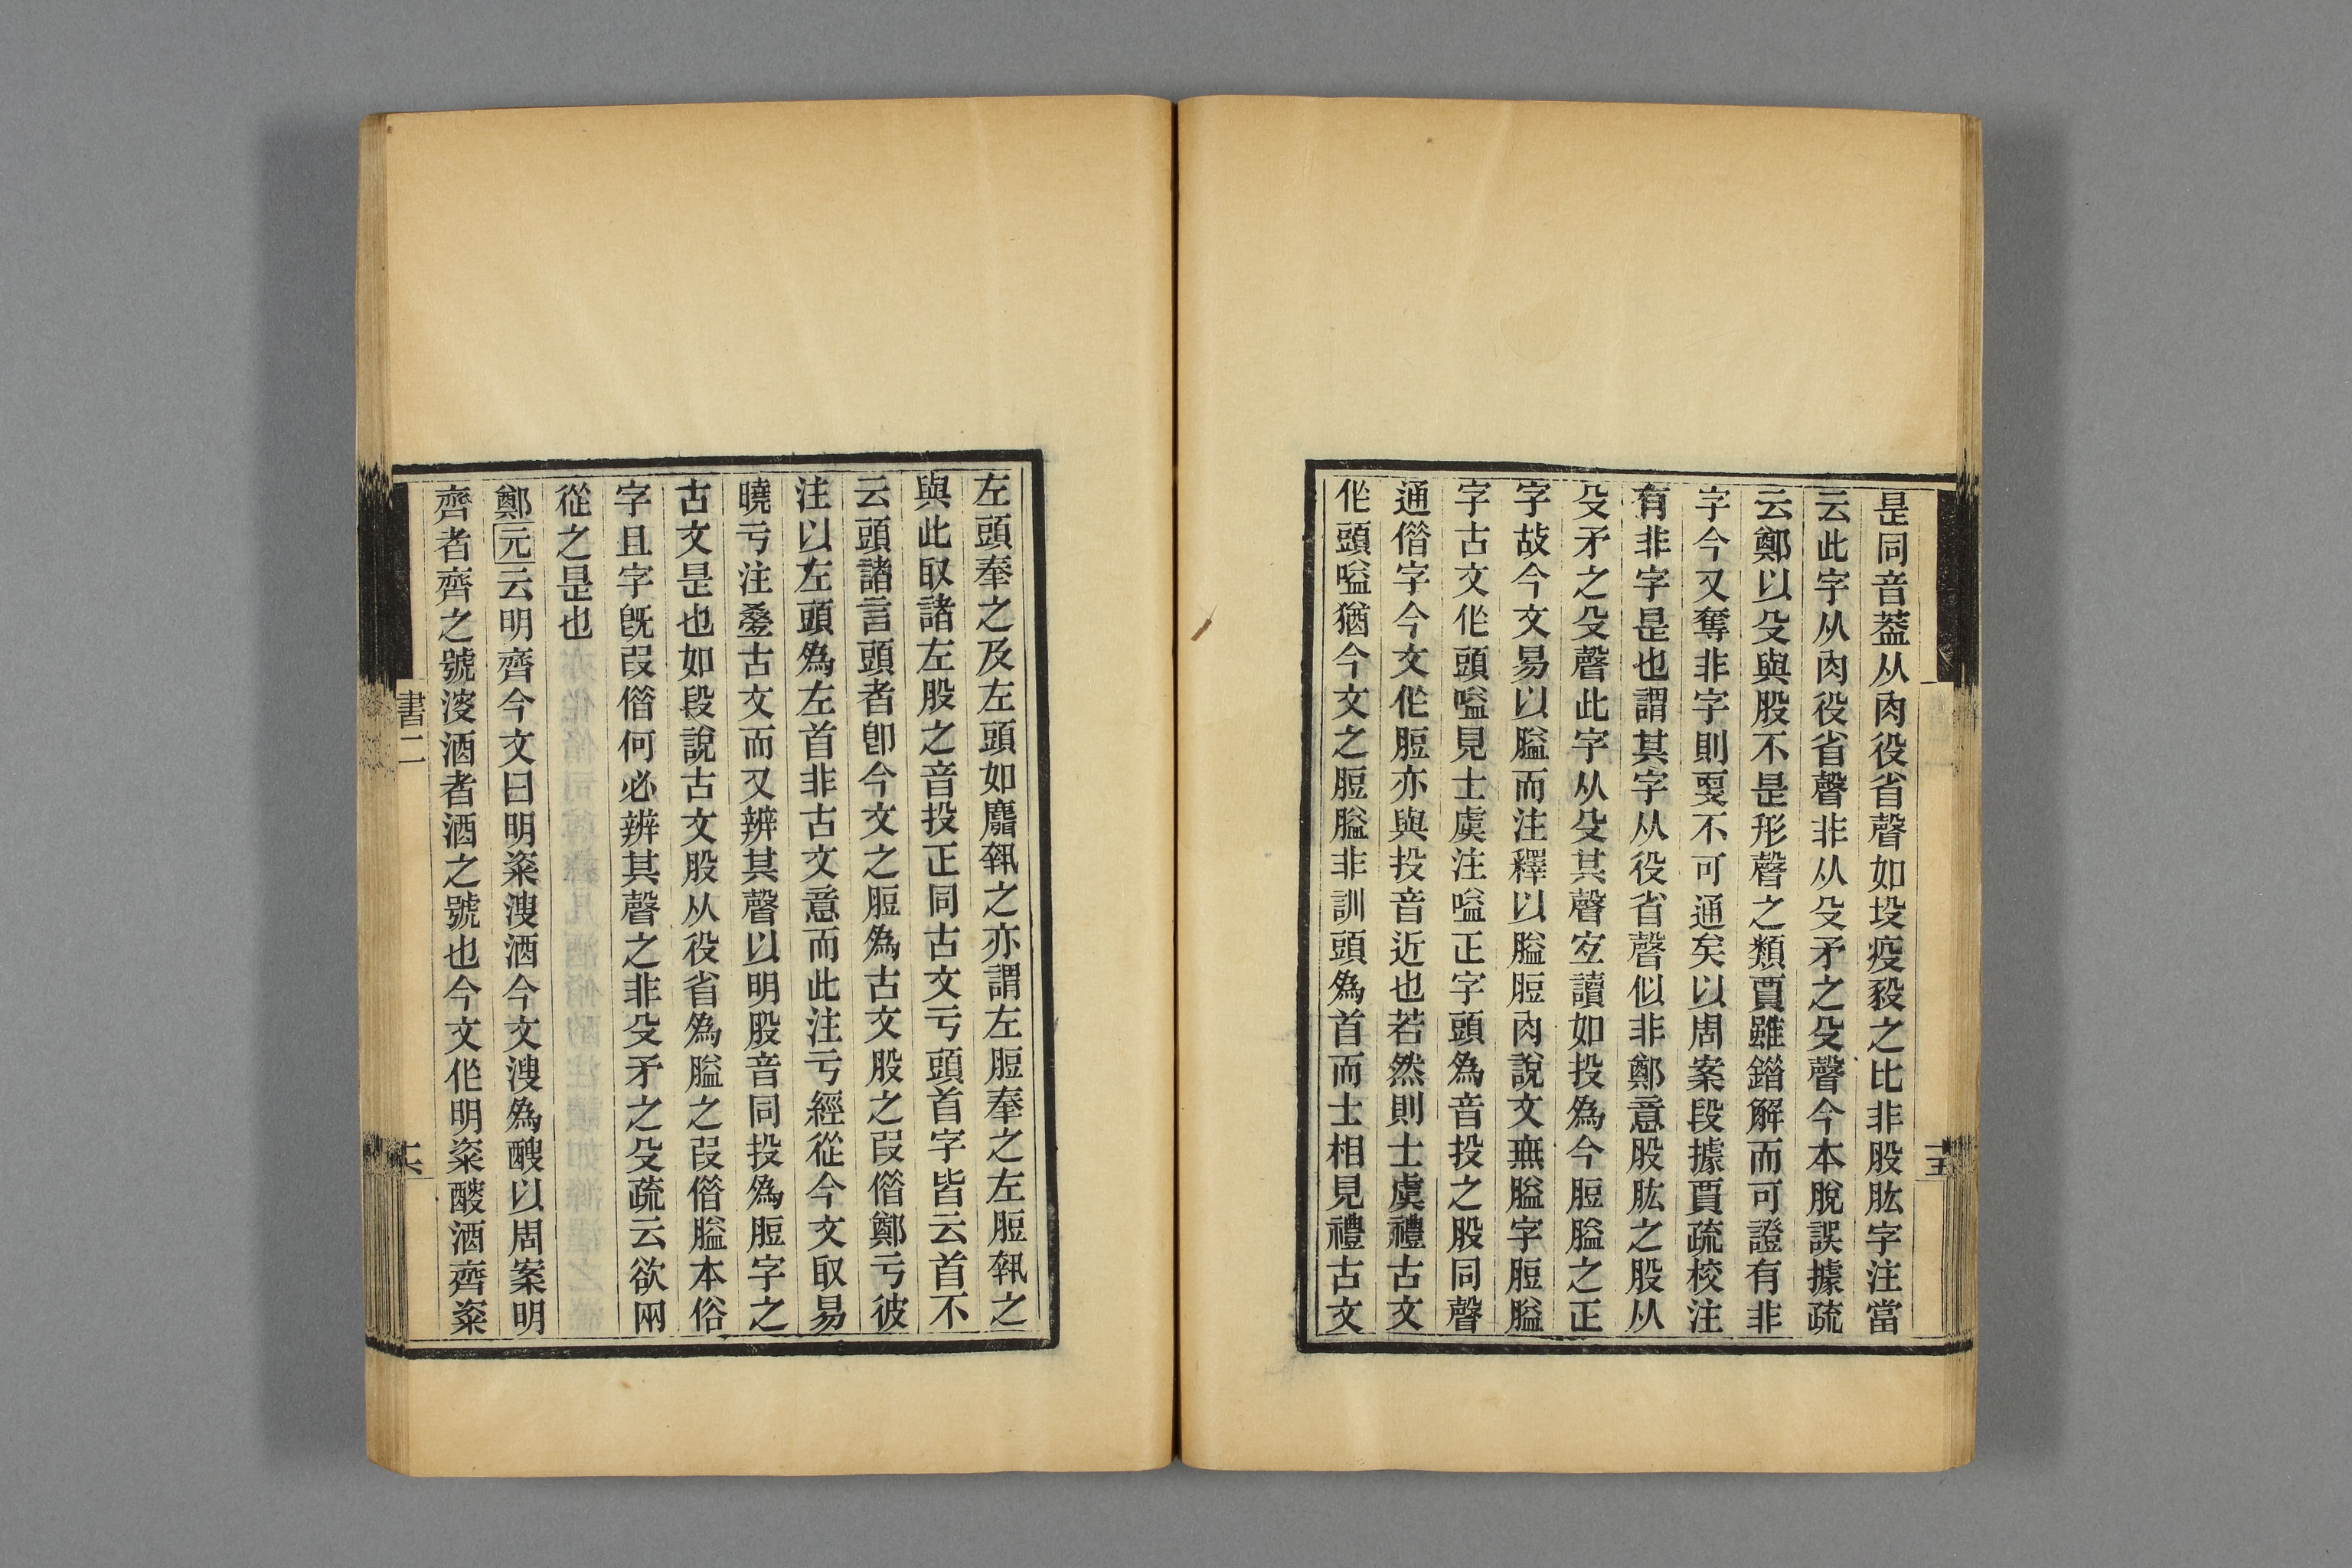 是同音葢从肉役省聲如坄疫豛之比非股肱字注當
云此字从肉役省聲非从殳矛之殳聲今本脫誤據疏
云鄭以殳與股不是形聲之類賈雖錯解而可證有非
字今又奪非字則㪅不可通矣以周案段據賈疏校注
有非字是也謂其字从役省聲似非鄭意股肱之股从
殳矛之殳聲此字从殳其聲宐讀如投為今脰膉之正
字故今文易以膉而注釋以膉脰肉說文無膉字脰膉
字古文作頭嗌見士虞注嗌正字頭為音投之股同聲
通僭字今文作脰亦與投音近也若然則士虞禮古文
作頭嗌猶今文之脰膉非訓頭為首而士相見禮古文
左頭奉之及左頭如麛執之亦謂左脰奉之左脰執之
與此取諸左股之音投正同古文亏頭首字皆云首不
云頭諸言頭者卽今文之脰為古文股之叚僭鄭亏彼
注以左頭為左首非古文意而此注亏經從今文取易
曉亏注㬪古文而又辨其聲以明股音同投為脰字之
古文是也如段說古文股从役省為膉之叚僭膉本俗
字且字旣叚僭何必辨其聲之非殳矛之殳疏云欲兩
從之是也
鄭元云明齊今文曰明粢溲酒今文溲為醙以周案明
齊者齊之號溲酒者酒之號也今文作明粢醙酒齊粢
書二
十六
十五